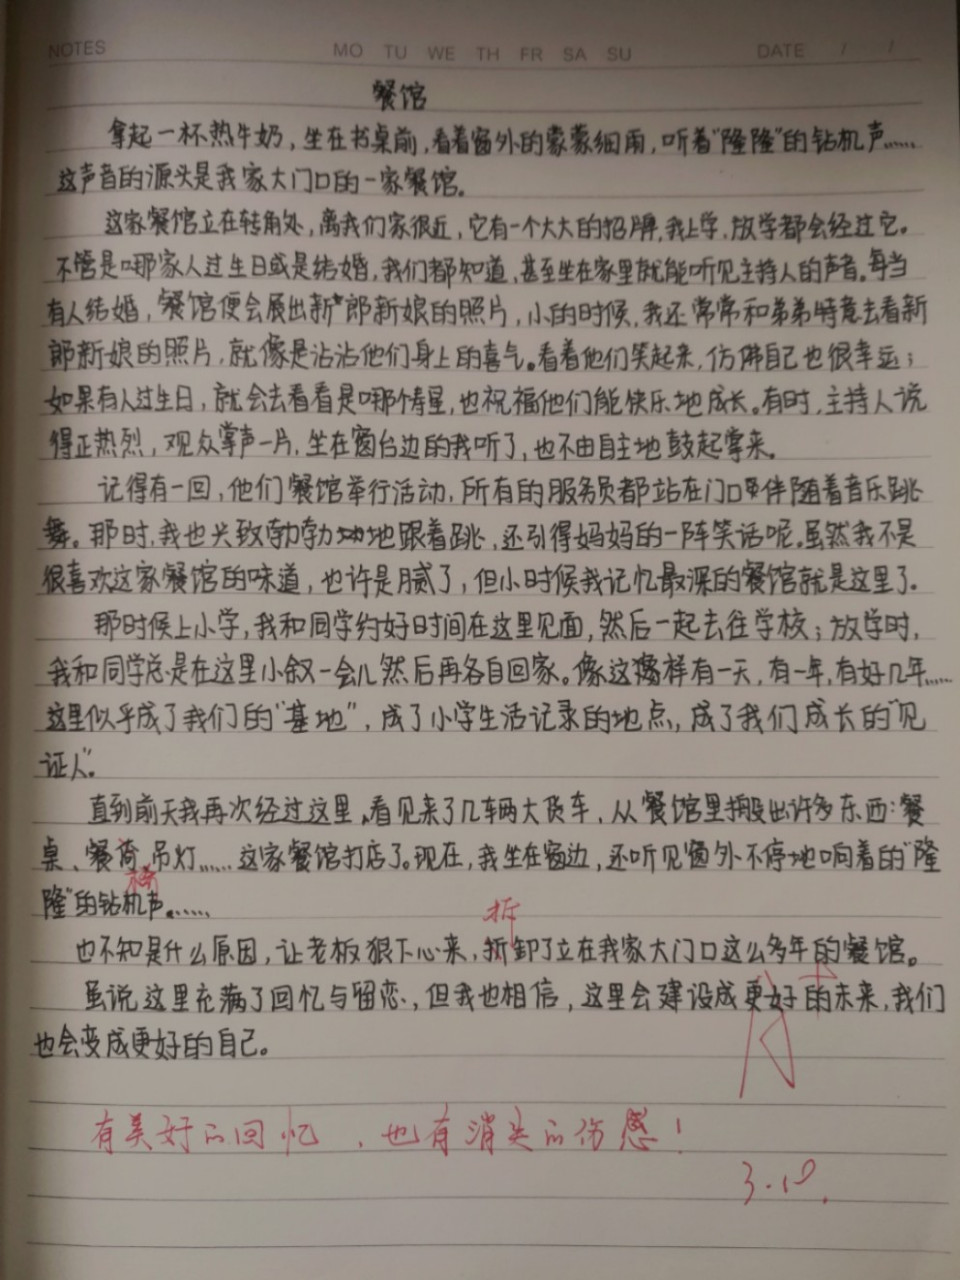 NOTES MO TU WE TH FR SA SU DATE / /
餐馆
拿起一杯热牛奶，坐在书桌前，看着窗外的蒙蒙细雨，听着“隆隆”的钻机声……
这声音的源头是我家大门口的一家餐馆。
这家餐馆立在转角处，离我们家很近，它有一个大大的招牌，我上学、放学都会经过它。
不管是哪家人过生日或是结婚，我们都知道，甚至坐在家里就能听见主持人的声音。每当
有人结婚，餐馆便会展出新郎新娘的照片，小的时候，我还常常和弟弟特意去看新
郎新娘的照片，就像是沾沾他们身上的喜气。看着他们笑起来，仿佛自己也很幸运；
如果有人过生日，就会去看看是哪个寿星，也祝福他们能快乐地成长。有时，主持人说
得正热烈，观众掌声一片，坐在窗台边的我听了，也不由自主地鼓起掌来。
记得有一回，他们餐馆举行活动，所有的服务员都站在门口伴随着音乐跳
舞。那时，我也兴致勃勃地跟着跳，还引得妈妈的一阵笑话呢。虽然我不是
很喜欢这家餐馆的味道，也许是腻了，但小时候我记忆最深的餐馆就是这里了。
那时候上小学，我和同学约好时间在这里见面，然后一起去往学校；放学时，
我和同学总是在这里小叙一会儿然后再各自回家。像这样有一天，有一年，有好几年……
这里似乎成了我们的“基地”，成了小学生活记录的地点，成了我们成长的“见
证人”。
直到前天我再次经过这里，看见来了几车两大货车，从餐馆里搬出许多东西：餐
桌、餐椅、吊灯……这家餐馆打店了。现在，我坐在窗边，还听见窗外不停地响着的“隆
隆”的钻机声……
拆
也不知是什么原因，让老板狠下心来，折卸了立在我家大门口这么多年的餐馆。
虽说这里充满了回忆与留恋，但我也相信，这里会建设成更好的未来，我们
也会变成更好的自己。
有美好的回忆，也有消失的伤感！
3.18.